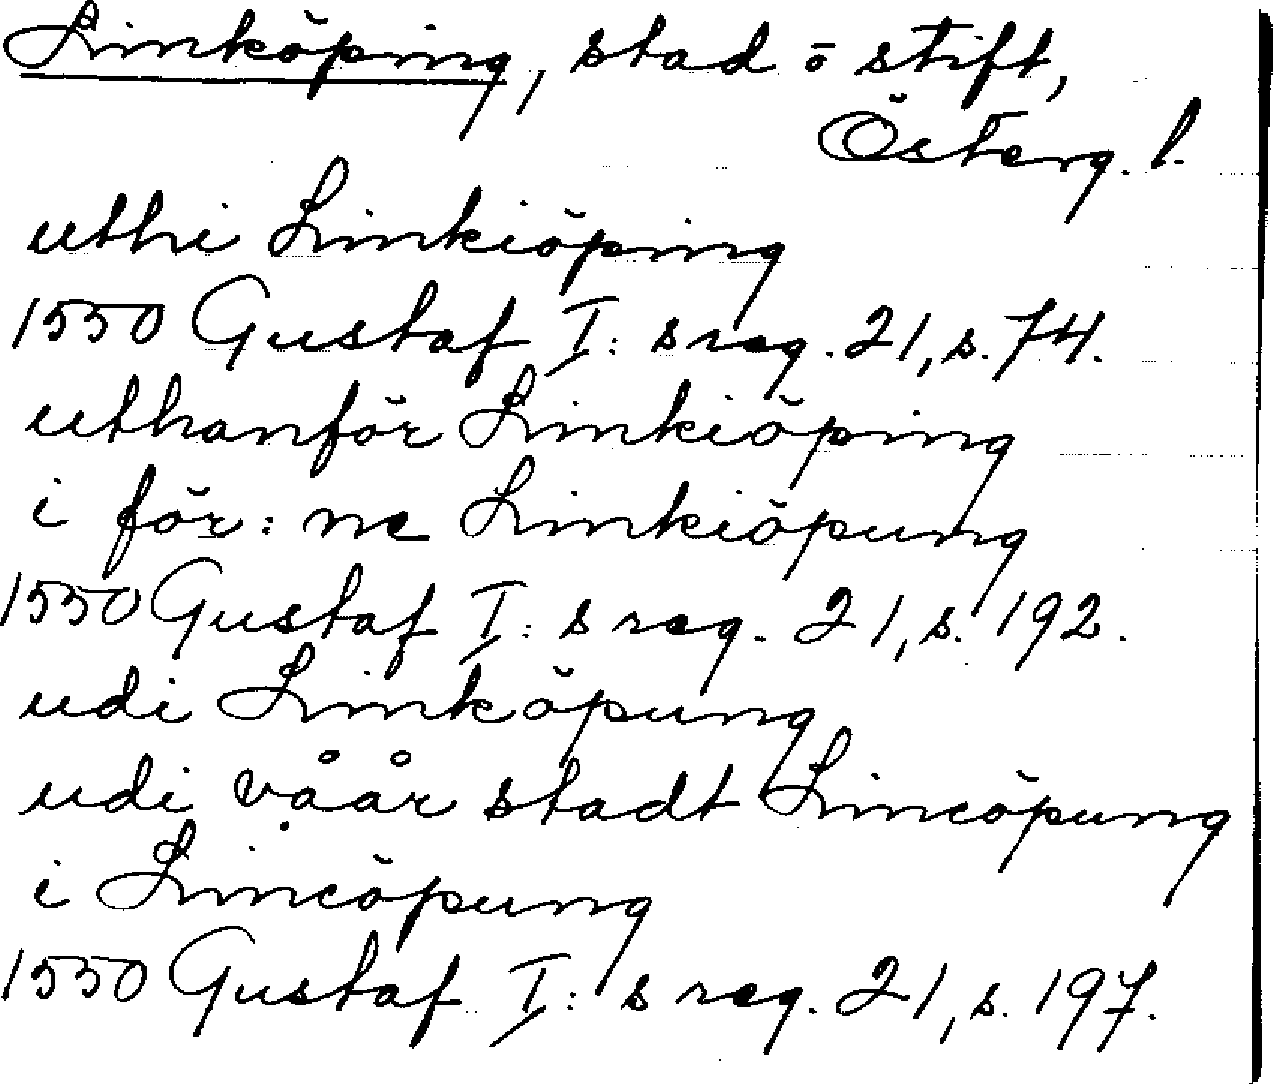 Linköping, stad o stift,
Österg. l.
uthi Linkiöping
1550 Gustaf I: s reg. 21, s. 74.
uthanför Linkiöping
i för: ne Linkiöpung
1550 Gustaf I: s reg. 21, s. 192.
udi Linköpung
udi våår stadt Lincöpung
i Lincöpung
1550 Gustaf I: s reg. 21, s. 197.